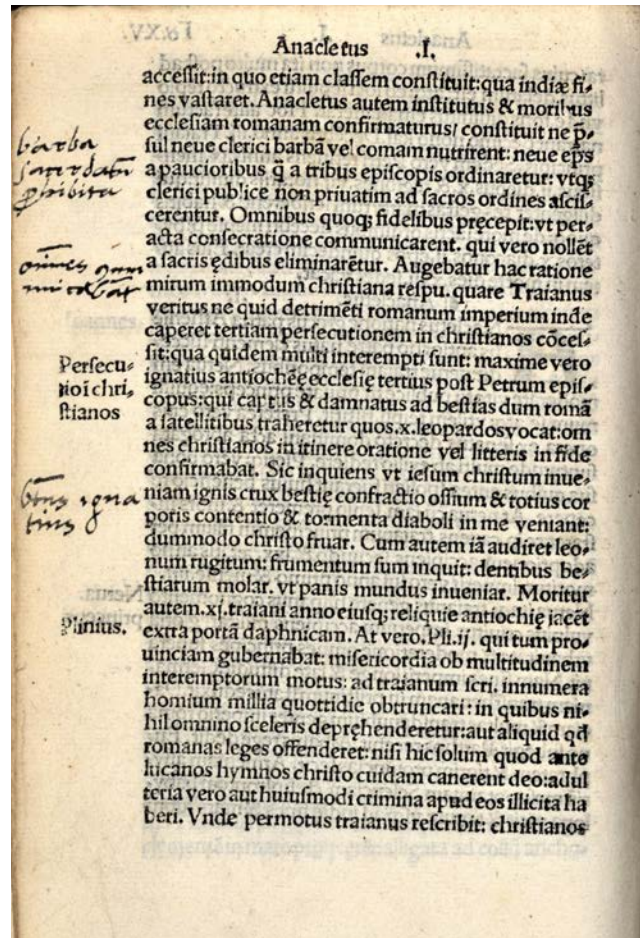 Anacletus .I.
accessit: in quo etiam classem constituit: qua indiæ fi-
nes vastaret. Anacletus autem institutus & moribus
ecclesiam romanam confirmaturus/ constituit ne p̄-
sul neue clerici barbā vel comam nutrirent: neue ep̄s
a paucioribus q̄ a tribus episcopis ordinaretur: vtq;
clerici publice non priuatim ad sacros ordines ascis-
cerentur. Omnibus quoq; fidelibus pręcepit: vt per-
acta consecratione communicarent. qui vero nollēt
a sacris ędibus eliminarētur. Augebatur hac ratione
mirum immodum christiana respu. quare Traianus
veritus ne quid detrimēti romanum imperium inde
caperet tertiam persecutionem in christianos cōces-
sit: qua quidem multi interempti sunt: maxime vero
ignatius antiochēę ecclesię tertius post Petrum epis-
copus: qui captus & damnatus ad bestias dum romā
a satellitibus traheretur quos .x. leopardos vocat: om
nes christianos in itinere oratione vel litteris in fide
confirmabat. Sic inquiens vt iesum christum inue-
niam ignis crux bestię confractio ossium & totius cor
poris contentio & tormenta diaboli in me veniant:
dummodo christo fruar. Cum autem iā audiret leo-
num rugitum: frumentum sum inquit: dentibus be-
stiarum molar. vt panis mundus inueniar. Moritur
autem .xj. traiani anno eiusq; reliquie antiochię iacēt
extra portā daphnicam. At vero .Pli.ij. qui tum pro-
uinciam gubernabat: misericordia ob multitudinem
interemptorum motus: ad traianum scri. innumera
homium millia quottidie obtruncari: in quibus ni-
hil omnino sceleris depręhenderetur: aut aliquid qd̄
romanas leges offenderet: nisi hic solum quod ante
lucanos hymnos christo cuidam canerent deo: adul
teria vero aut huiusmodi crimina apud eos illicita ha
beri. Vnde permotus traianus rescribit: christianos
barba
prohibita
Persecu-
tioī chri-
stianos
btus igna
tius
Plinius.